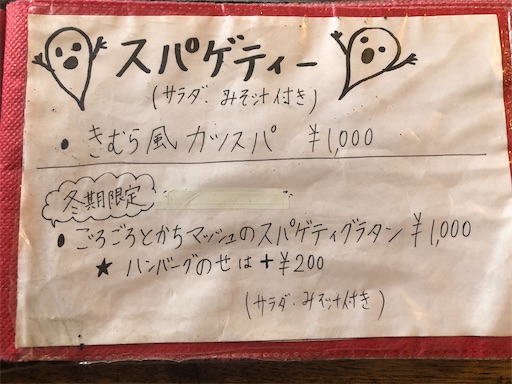 スパゲティー
(サラダ、みそ汁付き)
• きむら風 カツスパ ¥1,000
冬期限定
• ごろごろとかちマッシュのスパゲティグラタン ¥1,000
★ ハンバーグのせは +¥200
(サラダ、みそ汁付き)